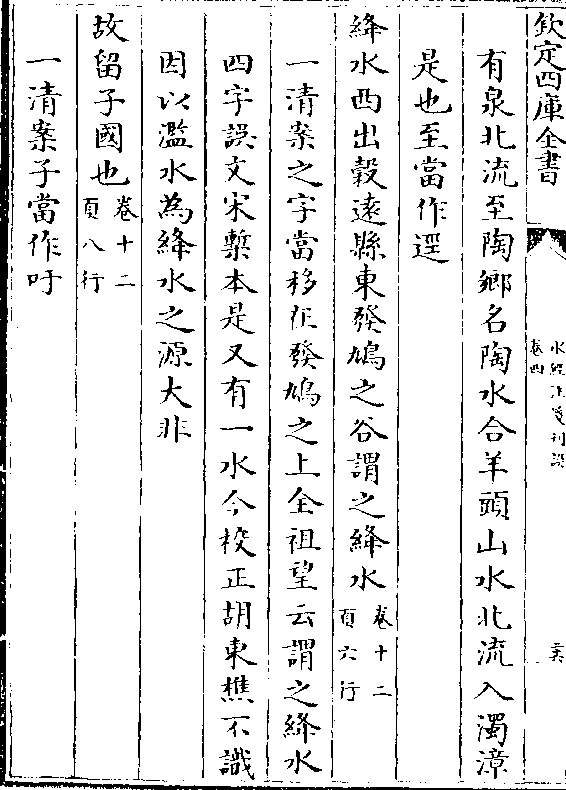 欽定四庫全書
水經注箋刊誤
卷四
有泉北流至陶鄉名陶水合羊頭山水北流入濁漳
是也至當作逕
絳水西出穀遠縣東發鳩之谷謂之絳水卷十二頁六行
一清案之字當移在發鳩之上全祖望云謂之絳水
四字誤文宋槧本是又有一水今校正胡東樵不識
因以濫水為絳水之源大非
故留子國也卷十二頁八行
一清案子當作吁